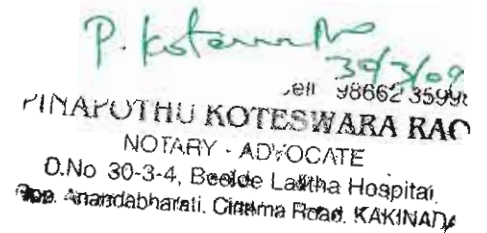 P. Koteswara Rao
30/3/09
Cell 98662 3599
PINAPOTHU KOTESWARA RAO
NOTARY - ADVOCATE
D.No 30-3-4, Beside Lalitha Hospital,
Opp. Anandabharati. Cinema Road. KAKINADA